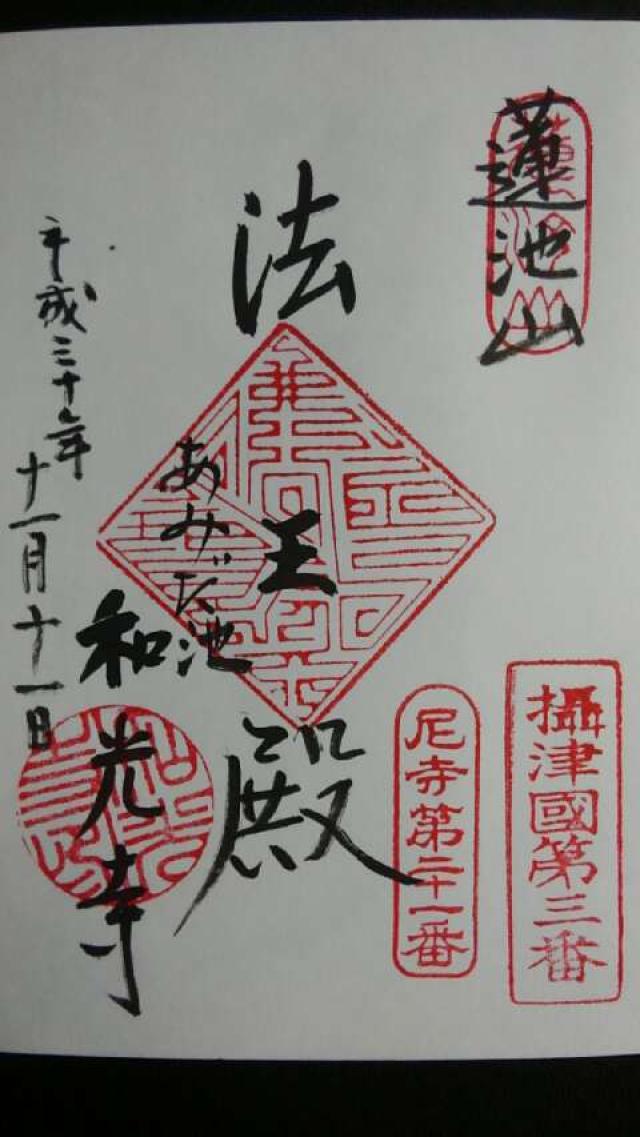 蓮池山
攝津國第三番
尼寺第二十一番
法王殿
あみだ池
和光寺
平成三十年
十一月十一日